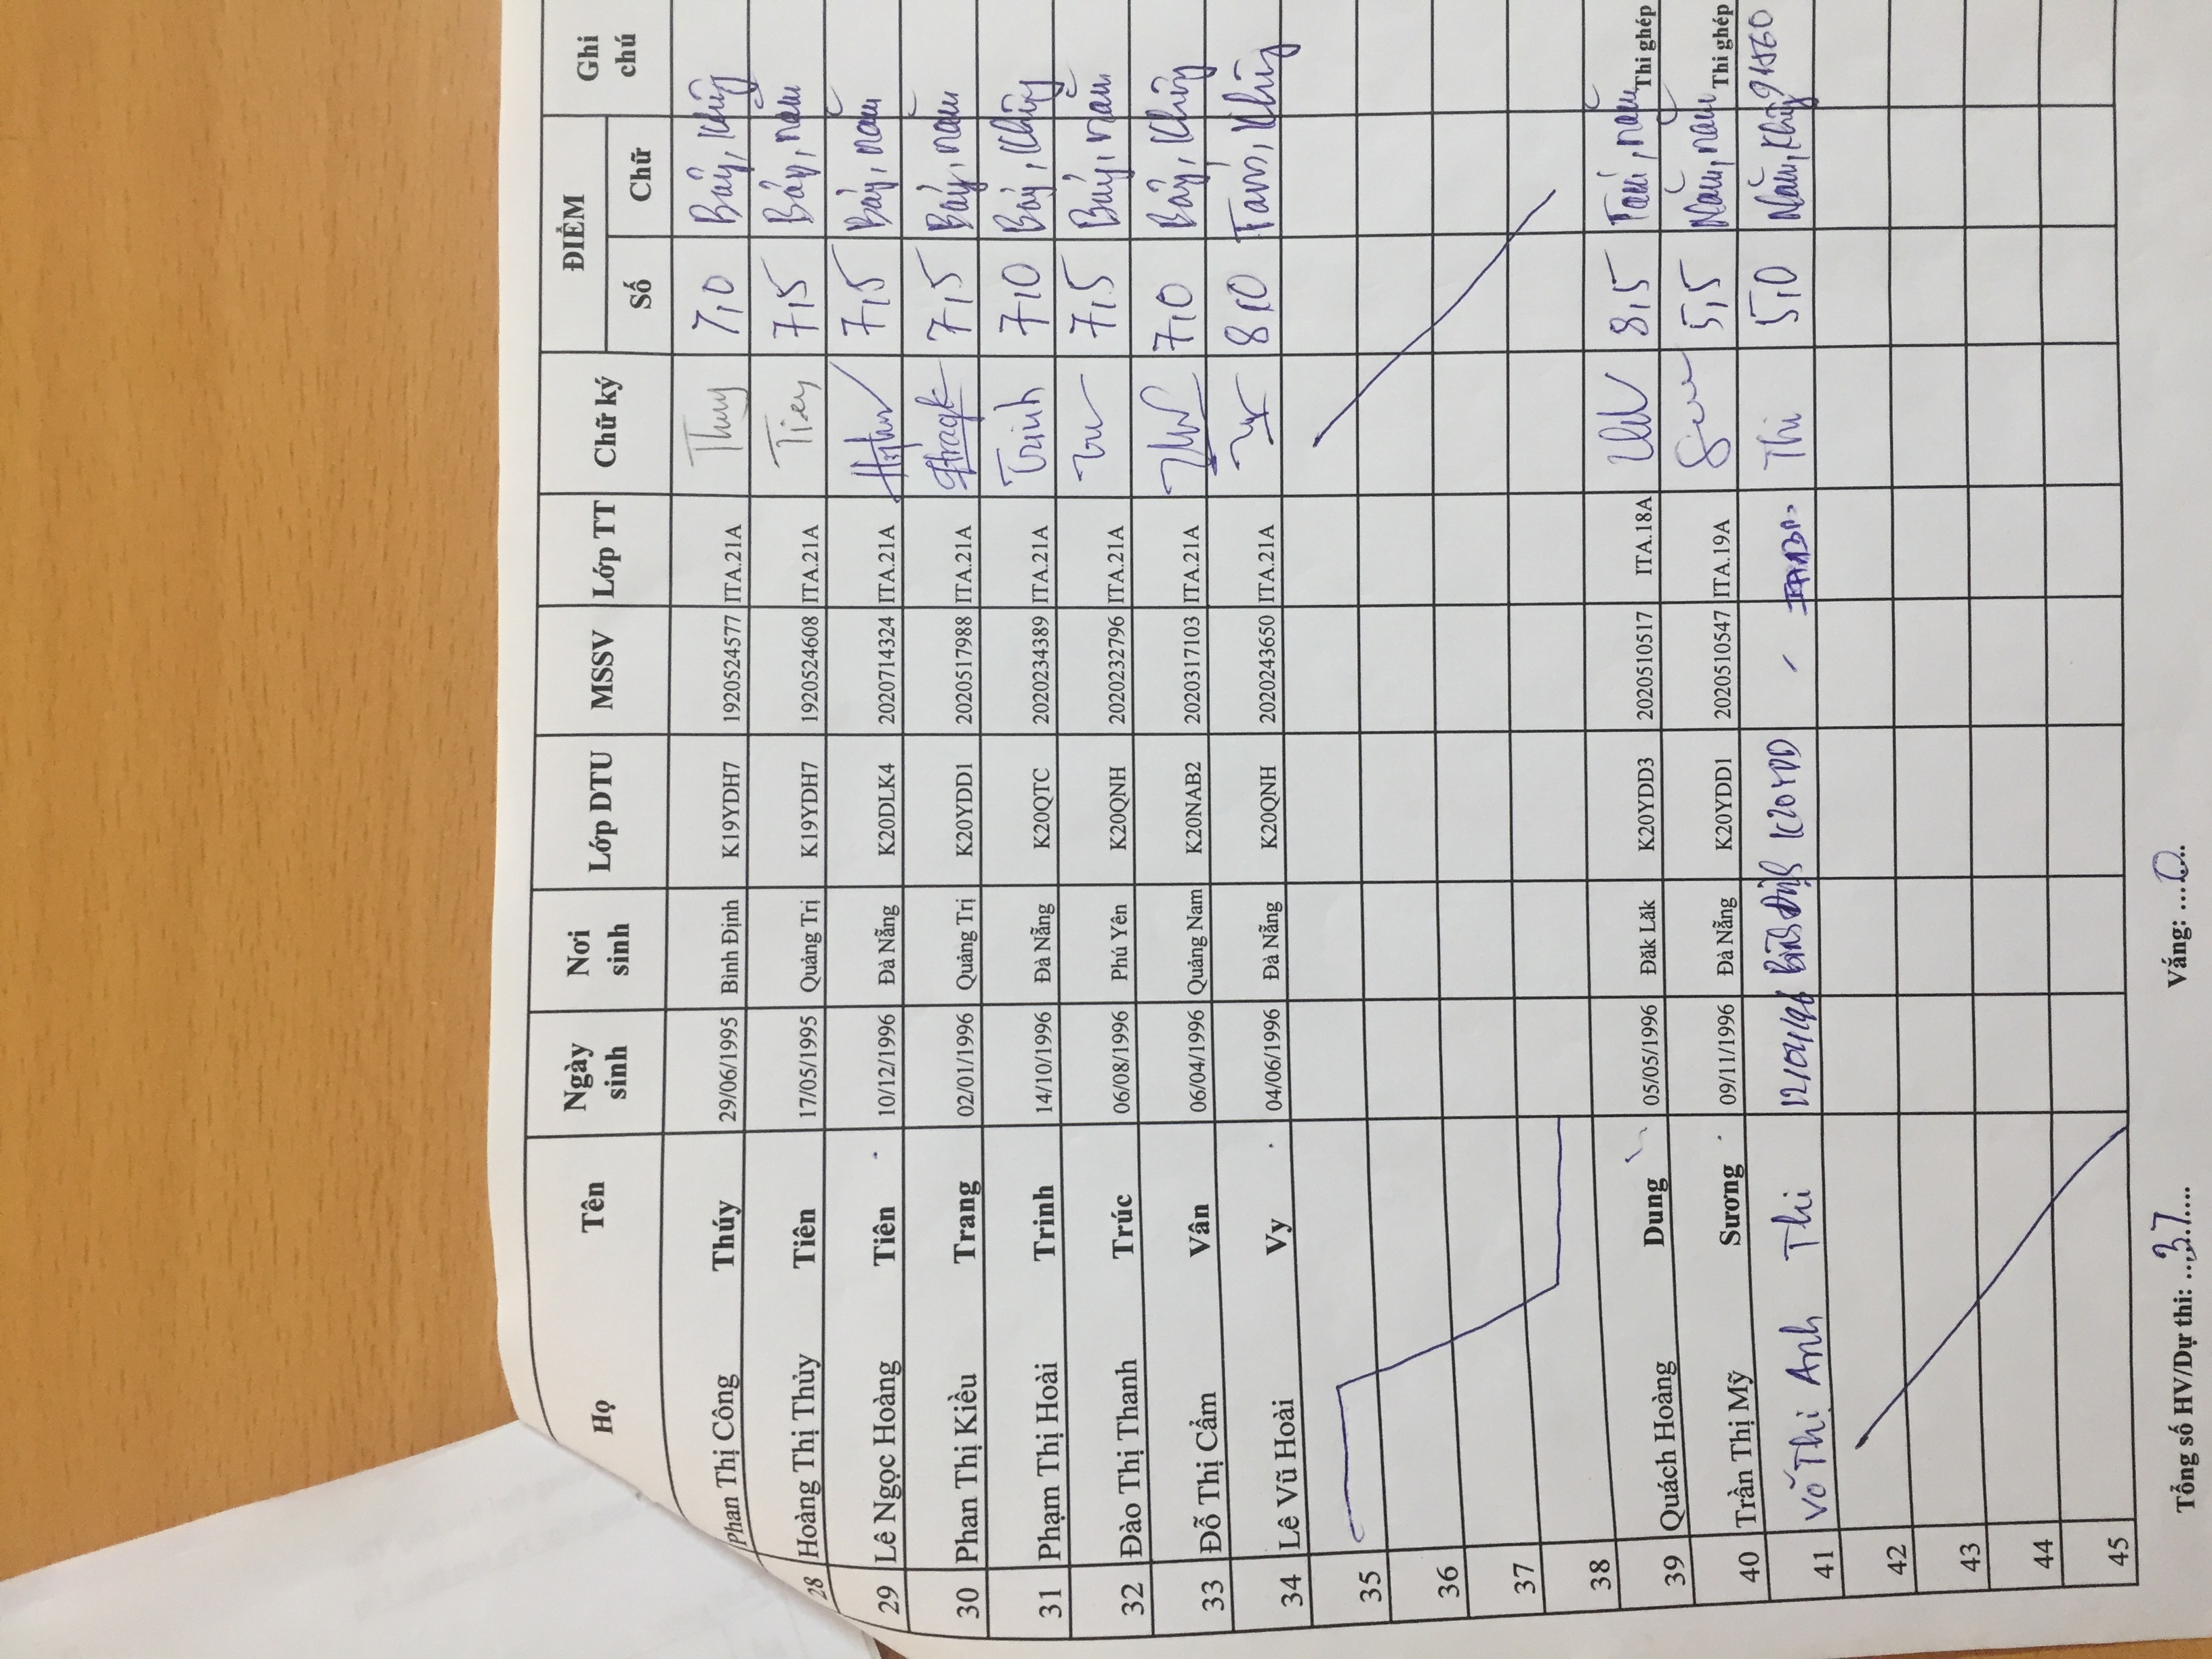 Họ Tên Ngày sinh Nơi sinh Lớp DTU MSSV Lớp TT Chữ ký ĐIỂM Ghi chú
Số Chữ
Phan Thị Công Thúy 29/06/1995 Bình Định K19YDH7 1920524577 ITA.21A Thuy 7,0 Bảy, không
28 Hoàng Thị Thủy Tiên 17/05/1995 Quảng Trị K19YDH7 1920524608 ITA.21A Tien 7,5 Bảy, năm
29 Lê Ngọc Hoàng Tiên 10/12/1996 Đà Nẵng K20DLK4 2020714324 ITA.21A 7,5 Bảy, năm
30 Phan Thị Kiều Trang 02/01/1996 Quảng Trị K20YDD1 2020517988 ITA.21A 7,5 Bảy, năm
31 Phạm Thị Hoài Trinh 14/10/1996 Đà Nẵng K20QTC 2020234389 ITA.21A Trinh 7,0 Bảy, không
32 Đào Thị Thanh Trúc 06/08/1996 Phú Yên K20QNH 2020232796 ITA.21A 7,5 Bảy, năm
33 Đỗ Thị Cẩm Vân 06/04/1996 Quảng Nam K20NAB2 2020317103 ITA.21A 7,0 Bảy, không
34 Lê Vũ Hoài Vy 04/06/1996 Đà Nẵng K20QNH 2020243650 ITA.21A 8,0 Tám, không
35
36
37
38
39 Quách Hoàng Dung 05/05/1996 Đăk Lăk K20YDD3 2020510517 ITA.18A 8,5 Tám, năm Thi ghép
40 Trần Thị Mỹ Sương 09/11/1996 Đà Nẵng K20YDD1 2020510547 ITA.19A 5,5 Năm, năm Thi ghép
41 Võ Thị Anh Thi 12/04/96 Bình Định K20YDD Thi 5,0 Năm, không
42
43
44
45
Tổng số HV/Dự thi: ...37... Vắng: ...0...